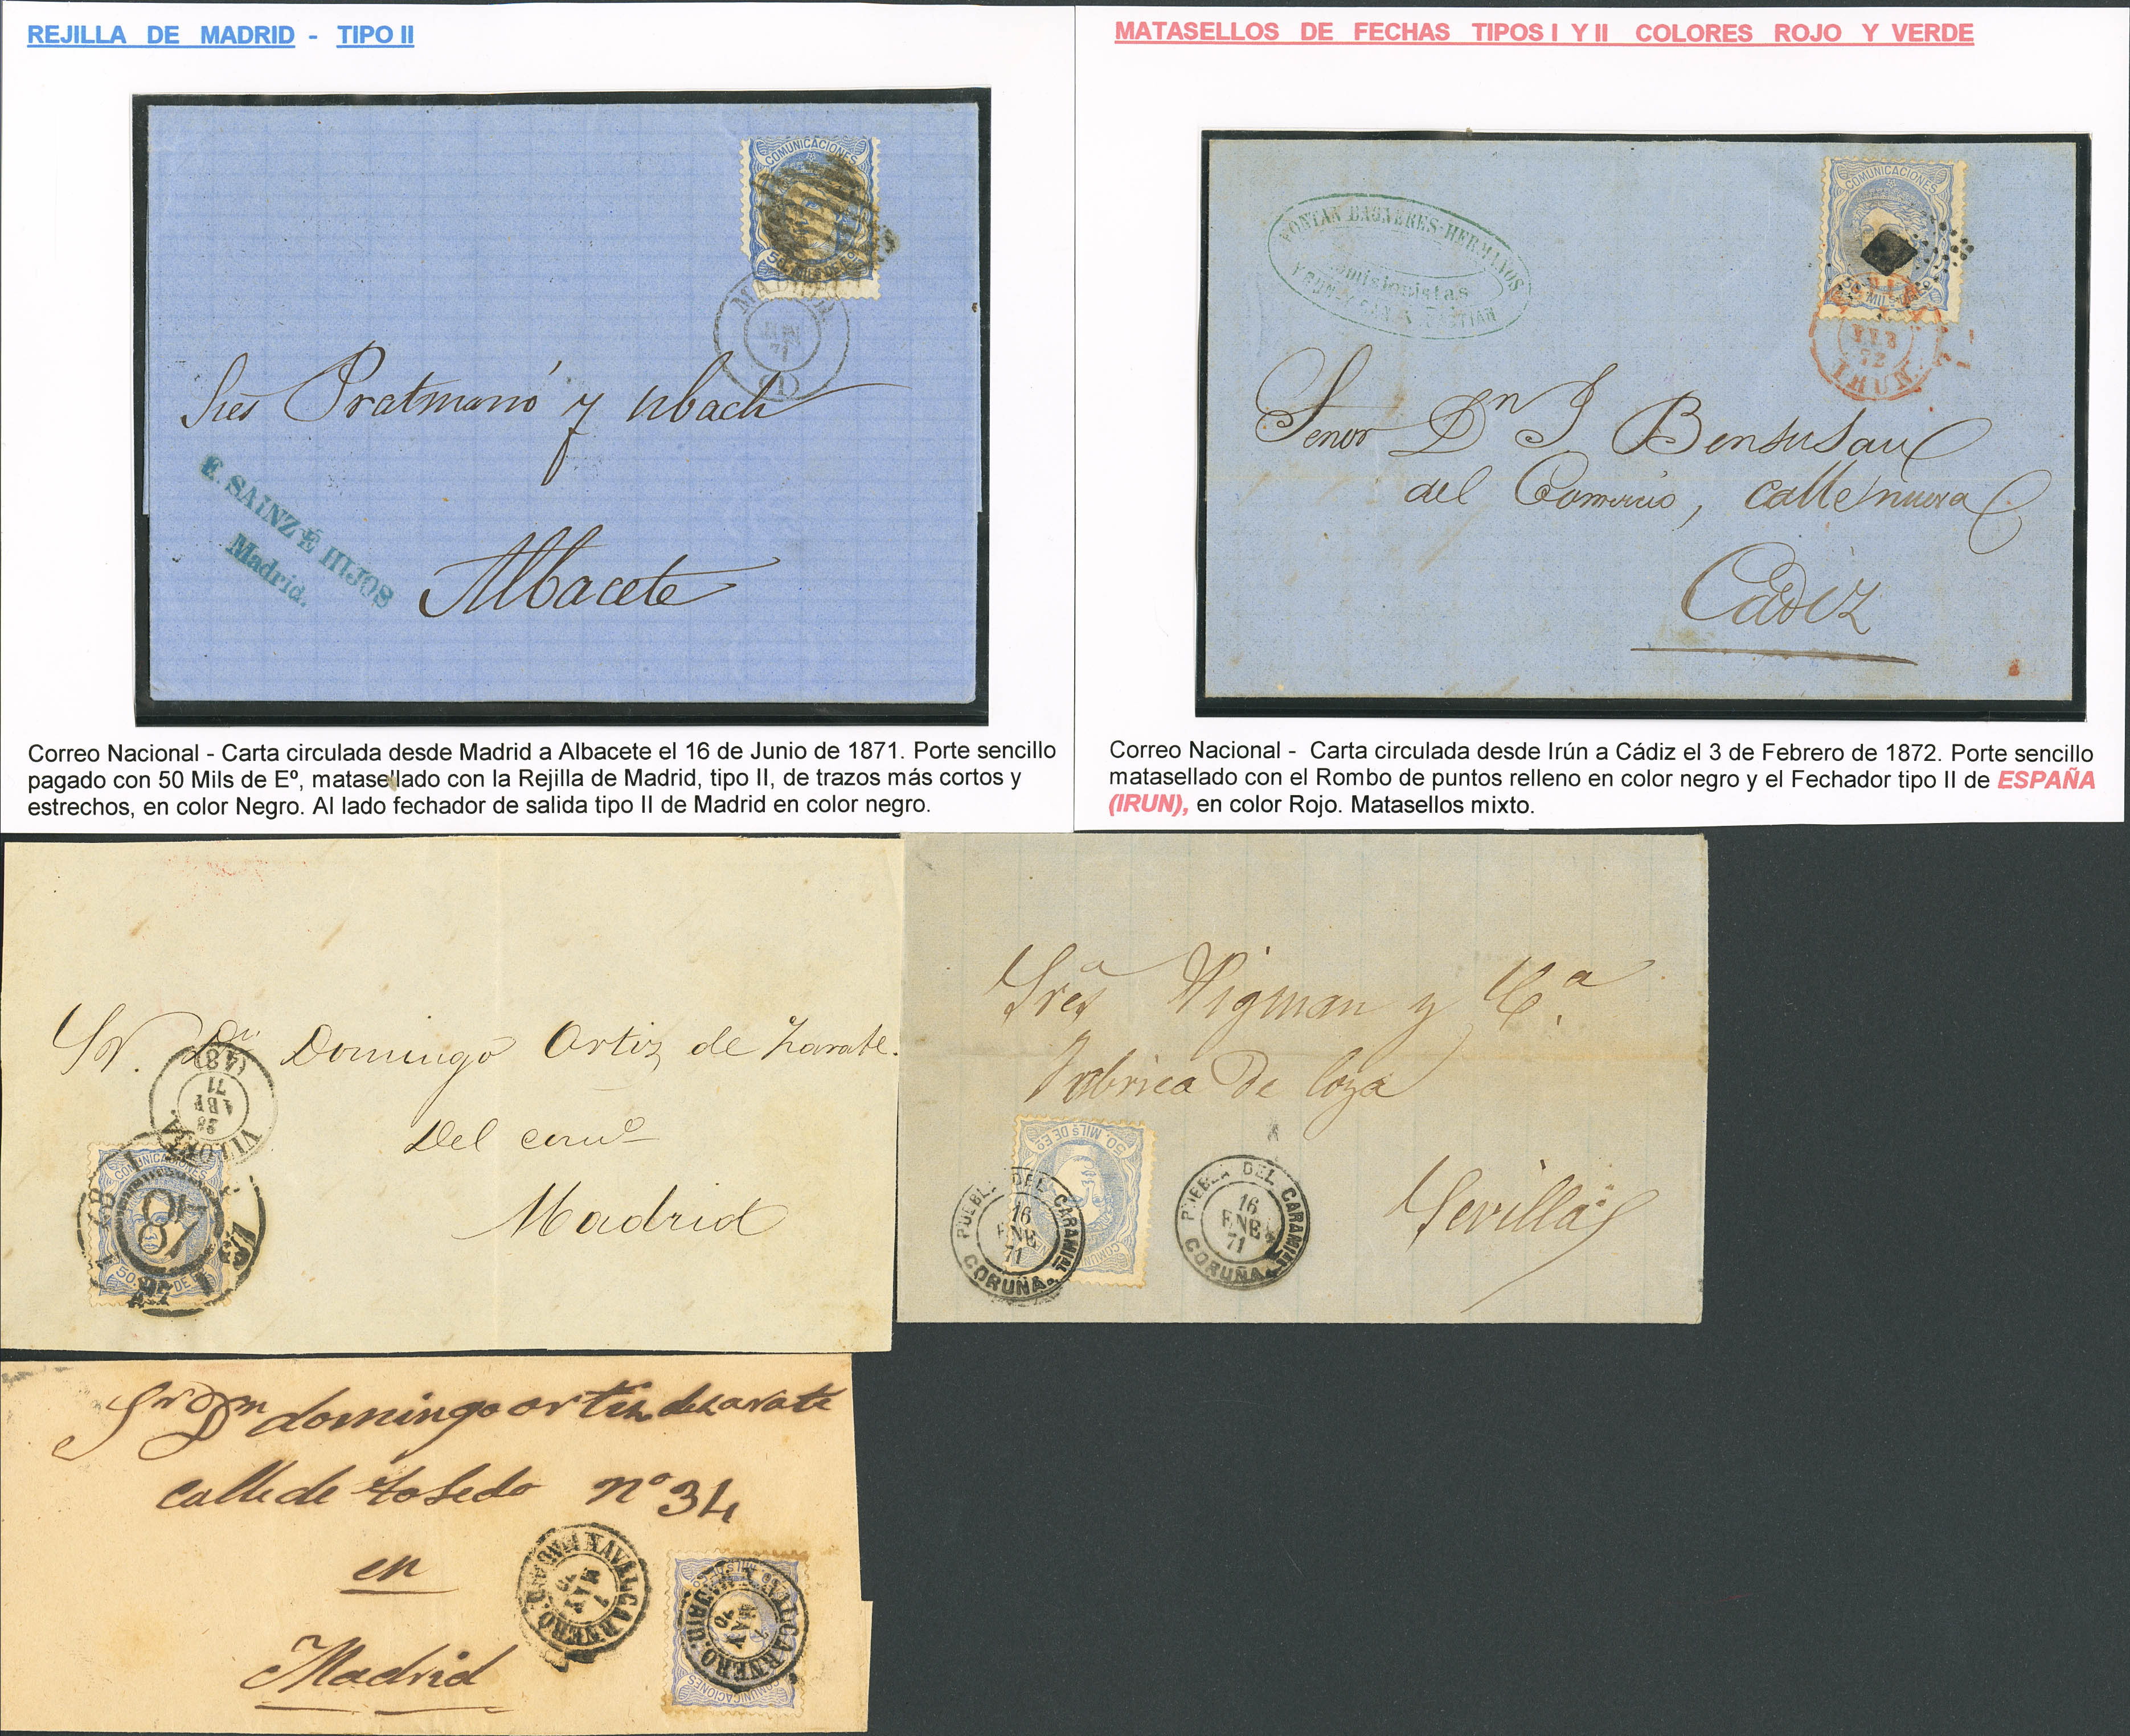 REJILLA DE MADRID - TIPO II
COMUNICACIONES
50 MILS DE Eº
MADRID
JUN
71
(1)
Sres Pratmarsó y Ubach
E. SAINZ É HIJOS
Madrid.
Albacete
Correo Nacional - Carta circulada desde Madrid a Albacete el 16 de Junio de 1871. Porte sencillo
pagado con 50 Mils de Eº, matasellado con la Rejilla de Madrid, tipo II, de trazos más cortos y
estrechos, en color Negro. Al lado fechador de salida tipo II de Madrid en color negro.
MATASELLOS DE FECHAS TIPOS I Y II COLORES ROJO Y VERDE
FONTAN BAGNERES-HERMANOS
Comisionistas
YRUN Y SAN SEBASTIAN
COMUNICACIONES
FEB
72
IRUN
Señor Dn J Bensusan
del Comercio, calle nueva
Cadiz
Correo Nacional - Carta circulada desde Irún a Cádiz el 3 de Febrero de 1872. Porte sencillo
matasellado con el Rombo de puntos relleno en color negro y el Fechador tipo II de ESPAÑA
(IRUN), en color Rojo. Matasellos mixto.
Sr. Dn Domingo Ortiz de Zarate.
Del como
Madrid
VITORIA
28
71
(48)
COMUNICACIONES
48
Sres Pigman y Ca
Fabrica de loza
Sevilla
50. MILS DE Eº
PUEBLA DEL CARAMIAL
16
ENE
71
CORUÑA
PUEBLA DEL CARAMIAL
16
ENE
71
CORUÑA
Sr Dn domingo ortiz dezarate
calle de toledo nº 34
en
Madrid
NAVALCARNERO
1
MAY
70
NAVALCARNERO
MADRID
MAY
70
COMUNICACIONES